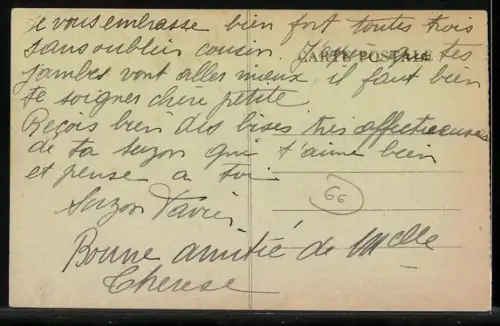 Je vous embrasse bien fort toutes trois
sans oublier cousin. J'espère que tes
CARTE POSTALE
jambes vont aller mieux, il faut bien
te soigner chère petite.
Reçois bien des bises très affectueuses
de ta Suzon qui t'aime bien
et pense a toi
Suzon
66
Bonne amitié de Melle
Therese